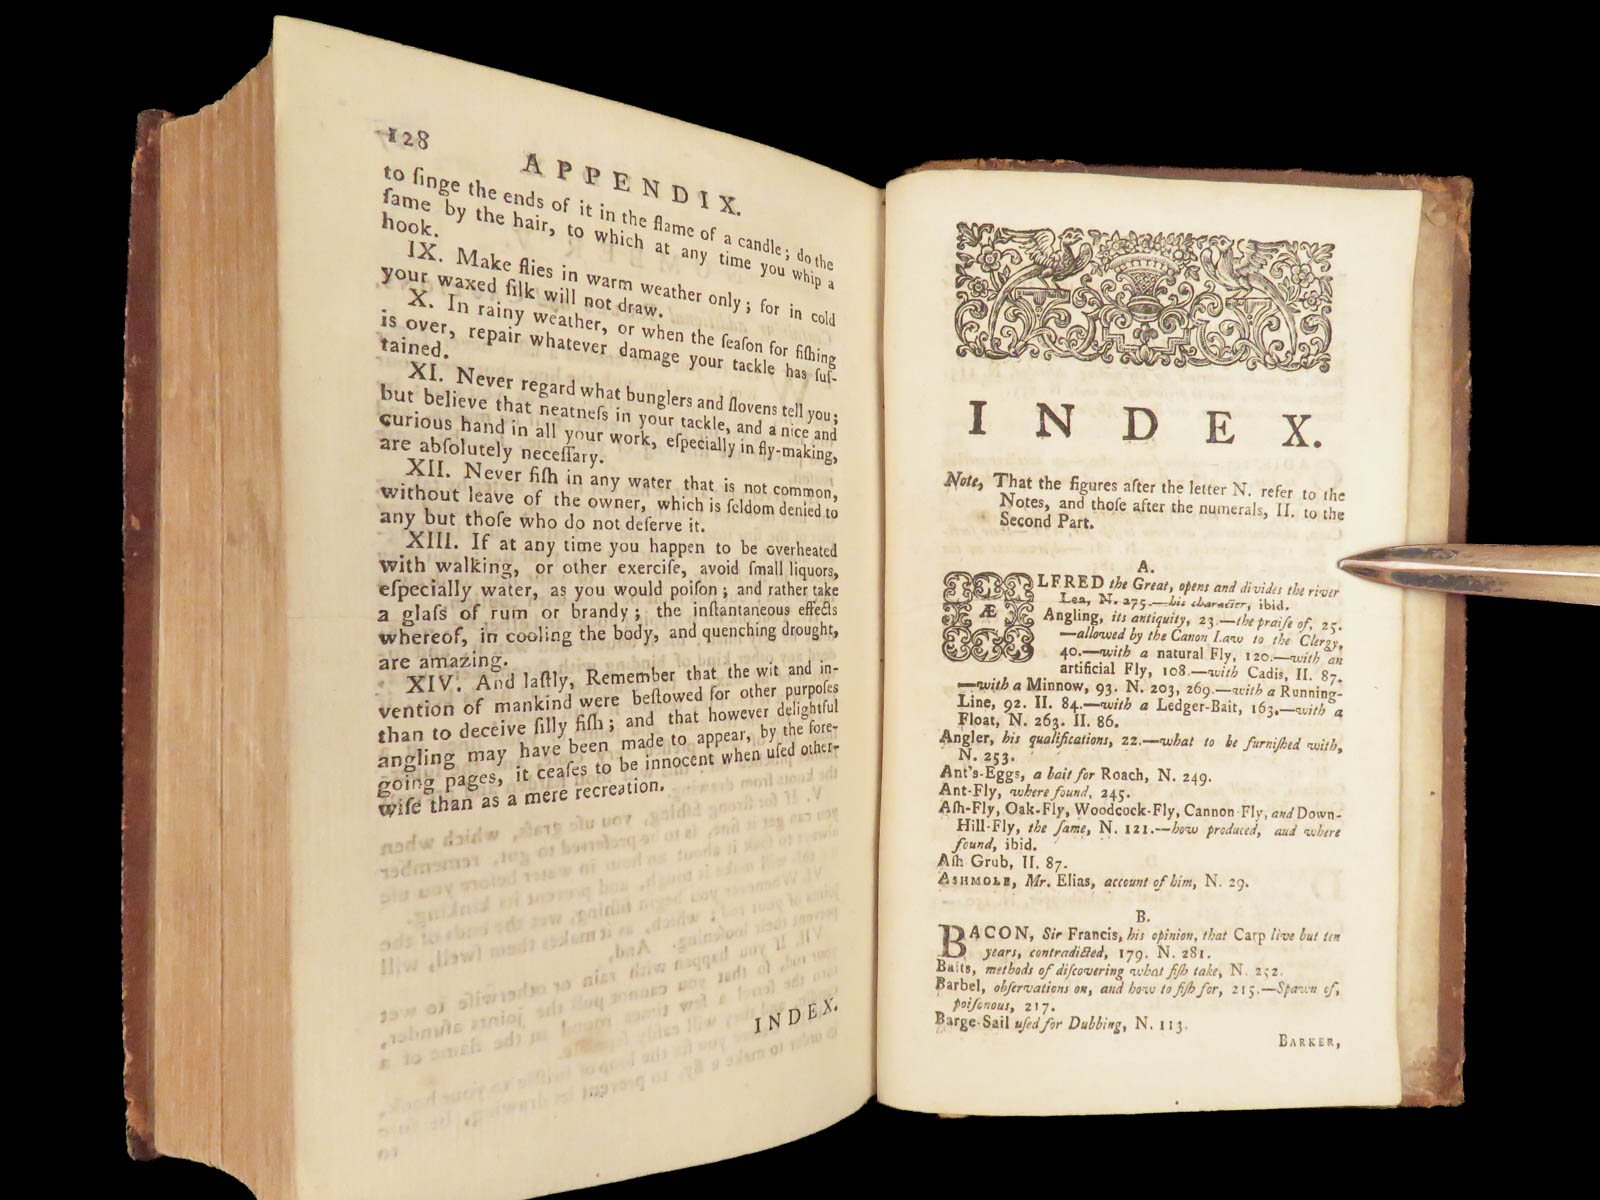 128
APPENDIX.
to ſinge the ends of it in the flame of a candle; do the
ſame by the hair, to which at any time you whip a
hook.
IX. Make flies in warm weather only; for in cold
your waxed ſilk will not draw.
X. In rainy weather, or when the ſeaſon for fiſhing
is over, repair whatever damage your tackle has ſuſ-
tained.
XI. Never regard what bunglers and ſlovens tell you;
but believe that neatneſs in your tackle, and a nice and
curious hand in all your work, eſpecially in fly-making,
are abſolutely neceſſary.
XII. Never fiſh in any water that is not common,
without leave of the owner, which is ſeldom denied to
any but thoſe who do not deſerve it.
XIII. If at any time you happen to be overheated
with walking, or other exerciſe, avoid ſmall liquors,
eſpecially water, as you would poiſon; and rather take
a glaſs of rum or brandy; the inſtantaneous effects
whereof, in cooling the body, and quenching drought,
are amazing.
XIV. And laſtly, Remember that the wit and in-
vention of mankind were beſtowed for other purpoſes
than to deceive ſilly fiſh; and that however delightful
angling may have been made to appear, by the fore-
going pages, it ceaſes to be innocent when uſed other-
wiſe than as a mere recreation.
INDEX.
INDEX.
Note, That the figures after the letter N. refer to the
Notes, and thoſe after the numerals, II. to the
Second Part.
A.
ÆLFRED the Great, opens and divides the river
Lea, N. 275.—his character, ibid.
Angling, its antiquity, 23.—the praiſe of, 25.
—allowed by the Canon Law to the Clergy,
40.—with a natural Fly, 120.—with an
artificial Fly, 108.—with Cadis, II. 87.
—with a Minnow, 93. N. 203, 269.—with a Running-
Line, 92. II. 84.—with a Ledger-Bait, 163.—with a
Float, N. 263. II. 86.
Angler, his qualifications, 22.—what to be furniſhed with,
N. 253.
Ant's-Eggs, a bait for Roach, N. 249.
Ant-Fly, where found, 245.
Aſh-Fly, Oak-Fly, Woodcock-Fly, Cannon-Fly, and Down-
Hill-Fly, the ſame, N. 121.—how produced, and where
found, ibid.
Aſh Grub, II. 87.
ASHMOLE, Mr. Elias, account of him, N. 29.
B.
BACON, Sir Francis, his opinion, that Carp live but ten
years, contradicted, 179. N. 281.
Baits, methods of diſcovering what fiſh take, N. 252.
Barbel, obſervations on, and how to fiſh for, 215.—Spawn of,
poiſonous, 217.
Barge-Sail uſed for Dubbing, N. 113.
BARKER,